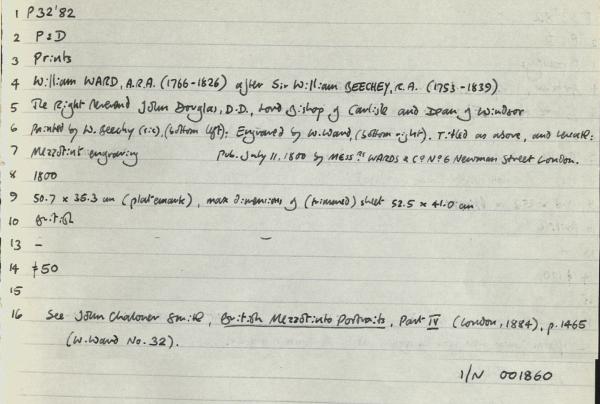 1 P32'82
2 P&D
3 Prints
4 William WARD, A.R.A. (1766-1826) after Sir William BEECHEY, R.A. (1753-1839)
5 The Right Reverend John Douglas, D.D., Lord Bishop of Carlisle and Dean of Windsor
6 Painted by W. Beechy (sic), (bottom left): Engraved by W. Ward, (bottom right). Titled as above, and
7 Mezzotint engraving Pub. July 11, 1800 by MESSRS WARDS & Co No 6 Newman Street London.
8 1800
9 50.7 x 35.3 cm (platemark), max dimensions of (trimmed) sheet 52.5 x 41.0 cm
10 British
13 -
14 £50
15
16 See John Chaloner Smith, British Mezzotinto Portraits, Part IV (London, 1884), p. 1465
(W. Ward No. 32).
1/N 001860